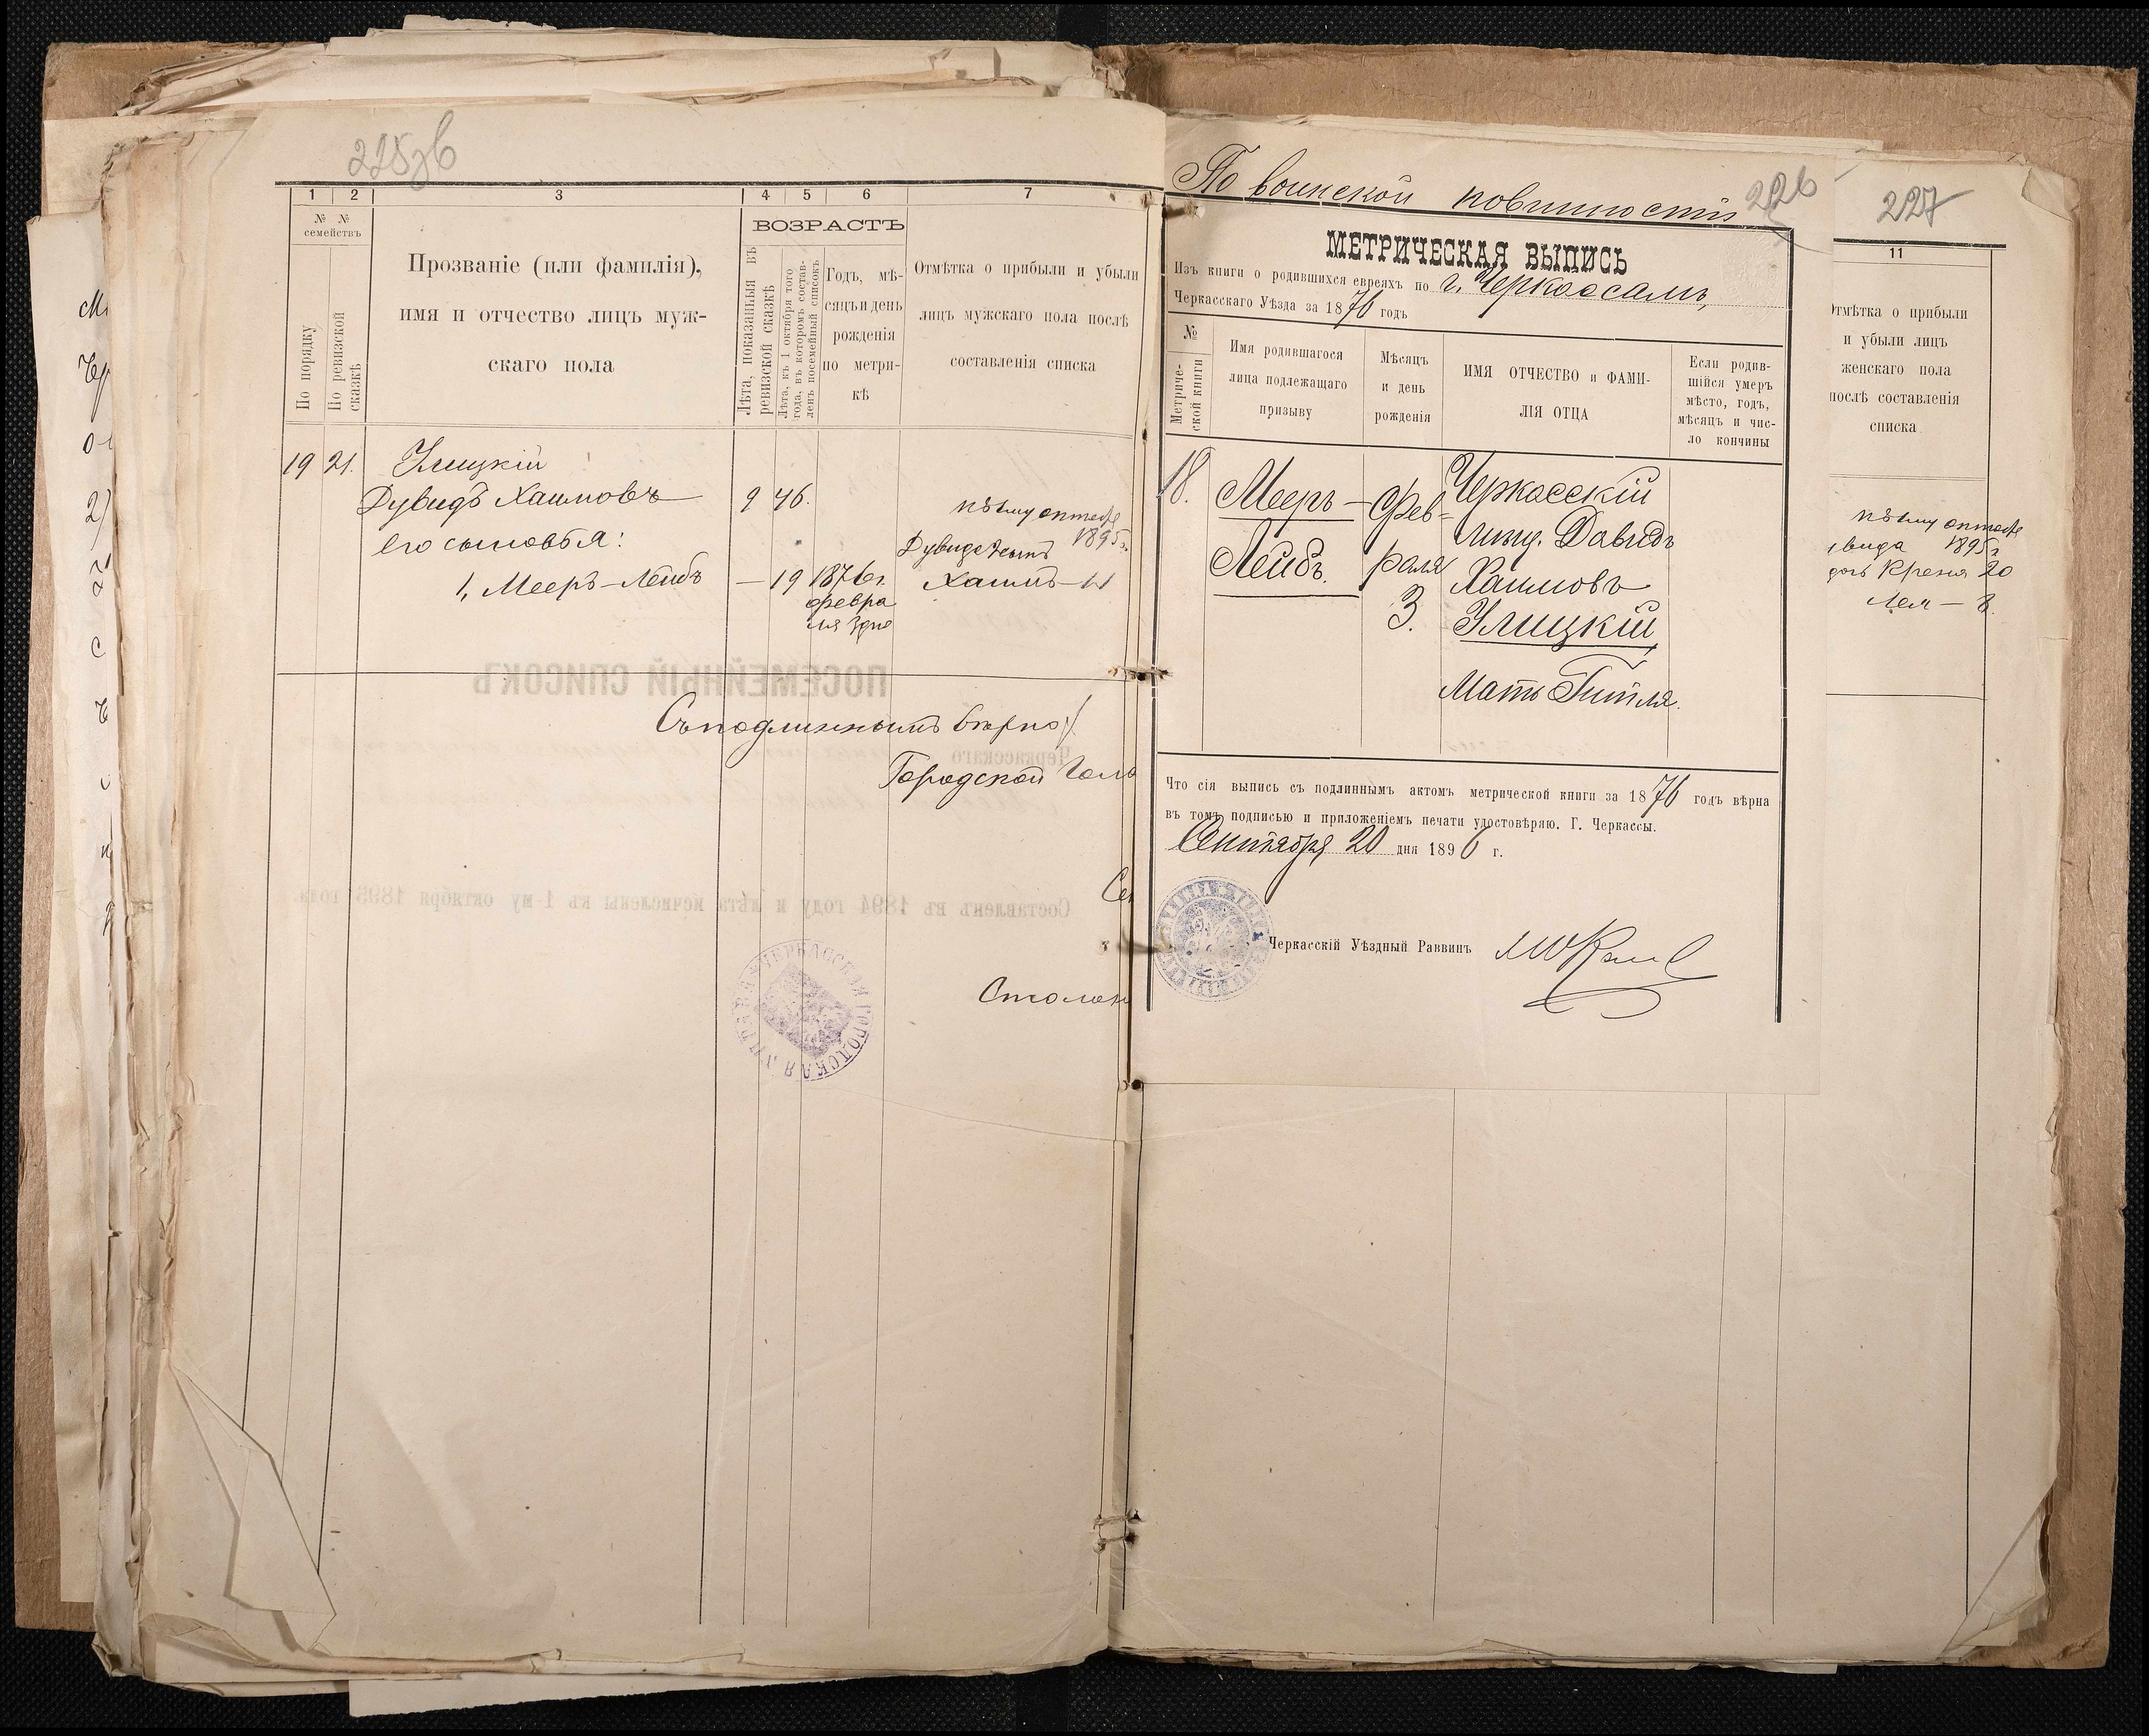 225об
1 2 3 4 5 6 7
№ №
семействъ
По порядку
По ревизской
сказкѣ
Прозваніе (или фамилія),
имя и отчество лицъ муж-
скаго пола
ВОЗРАСТЪ
Лѣта, показанныя въ
ревизской сказкѣ
Лѣта, къ 1 октября того
года, въ которомъ состав-
ленъ посемейный списокъ
Годъ, мѣ-
сяцъ и день
рожденія
по метри-
кѣ
Отмѣтка о прибыли и убыли
лицъ мужскаго пола послѣ
составленія списка
19 21. Улицкій
Дувидъ Хаимовъ 9 46.
его сыновья:
1, Мееръ-Лейбъ — 19 1876 г.
февра
ля 3 дня
къ 1му октября
1895 г.
Дувида сынъ
Хаимъ — 11
Съ подлиннымъ вѣрно:
Городской Голо
Се
ЧЕРКАССКАЯ ГОРОДСКАЯ УПРАВА
ПОСЕМЕЙНЫЙ СПИСОКЪ
Черкасскаго
Составленъ въ 1894 году и лѣта исчислены къ 1-му октября 1895 года.
По воинской повинности
226
МЕТРИЧЕСКАЯ ВЫПИСЬ
Изъ книги о родившихся евреяхъ по г. Черкассамъ,
Черкасскаго Уѣзда за 1876 годъ
№
Метриче-
ской книги
Имя родившагося
лица подлежащаго
призыву
Мѣсяцъ
и день
рожденія
ИМЯ ОТЧЕСТВО и ФАМИ-
ЛІЯ ОТЦА
Если родив-
шійся умеръ
мѣсто, годъ,
мѣсяцъ и чис-
ло кончины
18. Мееръ-
Лейбъ.
Фев-
раля
3.
Черкасскій
мѣщ. Давидъ
Хаимовъ
Улицкій,
Мать Гитля.
Что сія выпись съ подлиннымъ актомъ метрической книги за 1876 годъ вѣрна
въ томъ подписью и приложеніемъ печати удостовѣряю. Г. Черкассы.
Сентября 20 дня 1896 г.
Черкасскій Уѣздный Раввинъ
227
11
Отмѣтка о прибыли
и убыли лицъ
женскаго пола
послѣ составленія
списка
къ 1му октября
1895 г.
дочь Крейня 20
Лея — 8.